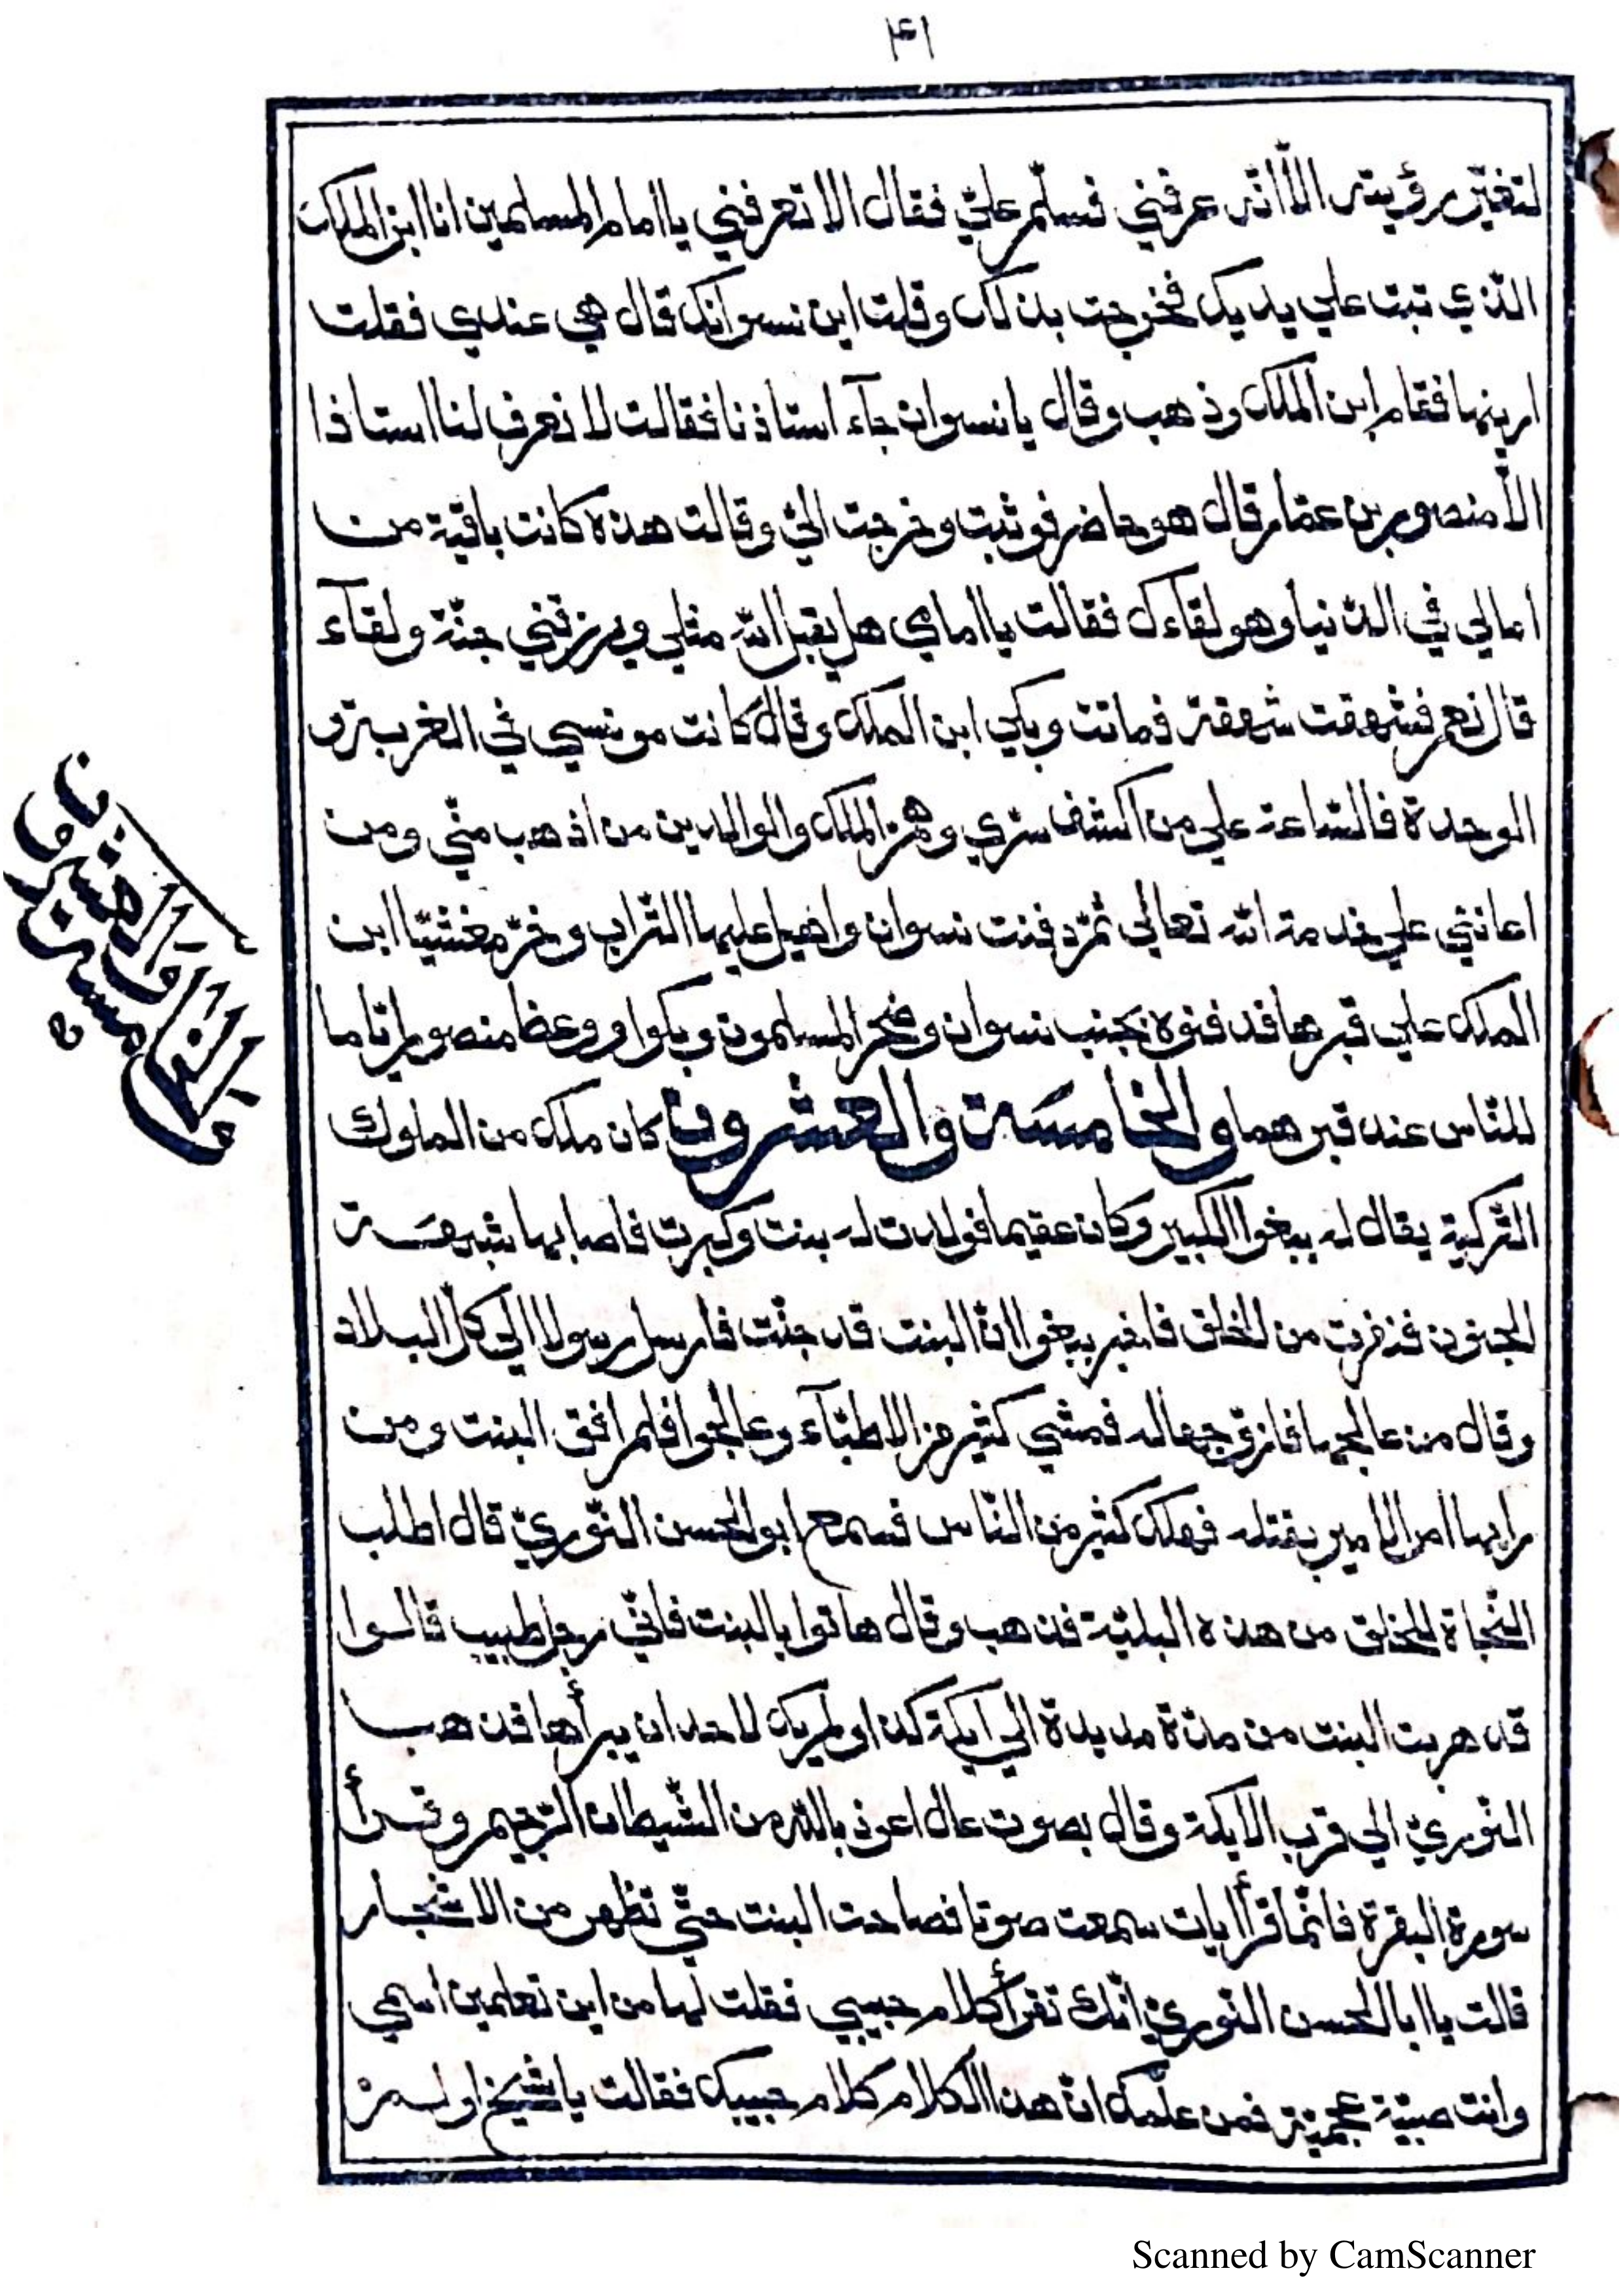 ٤١
لتغيّر رؤيته الّا انّه عرفني فسلّم عليّ فقال الا تعرفني يا امام المسلمين انا ابن الملك
الّذي تبت علي يديك فخرجت بذلك وقلت اين نسوانك قال هي عندي فقلت
ارينها فقام ابن الملك وذهب وقال يا نسوان جآء استاذنا فقالت لا نعرف لنا استاذا
الّا منصور بن عمّار قال هو حاضر فوثبت وخرجت اليّ وقالت هذه كانت باقية من
امالي في الدّنيا وهو لقاءك فقالت يا امامي هل يقبل اللّه مثلي ويرزقني جنّة ولقآء
قال نعم فشهقت شهقة فماتت وبكي ابن الملك وقال كانت مونسي في الغربة و
الوحدة فالسّاعة علي من اكشف سرّي وهمّ الملك والوالدين من اذهب منّي ومن
اعانني علي خدمة اللّه تعالي ثمّ دفنت نسوان واهيل عليها التّراب وخرّ مغشيّا ابن
الملك علي قبرها فدفنوه بجنب نسوان وضجّ المسلمون وبكوا ووعظ منصور اتاما
للنّاس عند قبرهما والخامسة والعشرون كان ملك من الملوك
التّركية يقال له ببغوا الكبير وكان عقيما فولدت له بنت وكبرت فاصابها شبهة
الجنون فنفرت من الخلق فاخبر ببغوا انّ البنت قد جنّت فارسل رسولا الي كلّ البلاد
وقال من عالجها فازوّجها له فمشي كثير من الاطبّآء وعالجوا فلم افق البنت ومن
رايها امر الامير بقتله فهلك كثير من النّاس فسمع ابو الحسن النّوريّ قال اطلب
النّجاة للخلق من هذه البليّة فذهب وقال هاتوا بالبنت فانّي رجل طبيب قالوا
قد هربت البنت من مدّة مديدة الي ايكة كذا ولم يك لاحد ان يبرأها فذهب
النّوريّ الي قرب الايكة وقال بصوت عال اعوذ باللّه من الشّيطان الرّجيم وقرأ
سورة البقرة فانّما قرأ ايات سمعت صوتا فصاحت البنت حتّي تظهر من الاشجار
قالت يا ابا الحسن النّوريّ انّك تقرأ كلام حبيبي فقلت لها من اين تعلمين اسمي
وانت صبيّة عجميّة فمن علّمك انّ هذا الكلام كلام حبيبك فقالت يا شيخ اولم
والخامسة والعشرون
Scanned by CamScanner